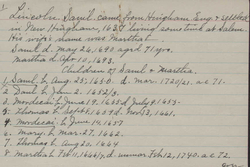 Lincoln Saml. came from Hingham, Eng. & settled
in New Hingham, 1637 living some time at Salem.
His wife's name was Martha
Saml. d. May 26, 1690 aged 71 yrs.
Martha d. Apr. 10, 1693.
Children of Saml. & Martha.
1. Saml. b. Aug. 25, 1650. d. Mar. 1720/21. ae. 71.
2. Daniel b. Jan. 2. 1652/3.
3. Mordecai b. June 19, 1655 d. July 8, 1655.
4. Mordecai b. June 14, 1657
5. Thomas b. Sept. 1659 d. Nov. 13, 1661.
6. Mary b. Mar. 27, 1662.
7. Thomas b. Aug. 20, 1664
8. Martha b. Feb. 11, 1666/7, d. unmar. Feb. 12, 1740. ae. 72.